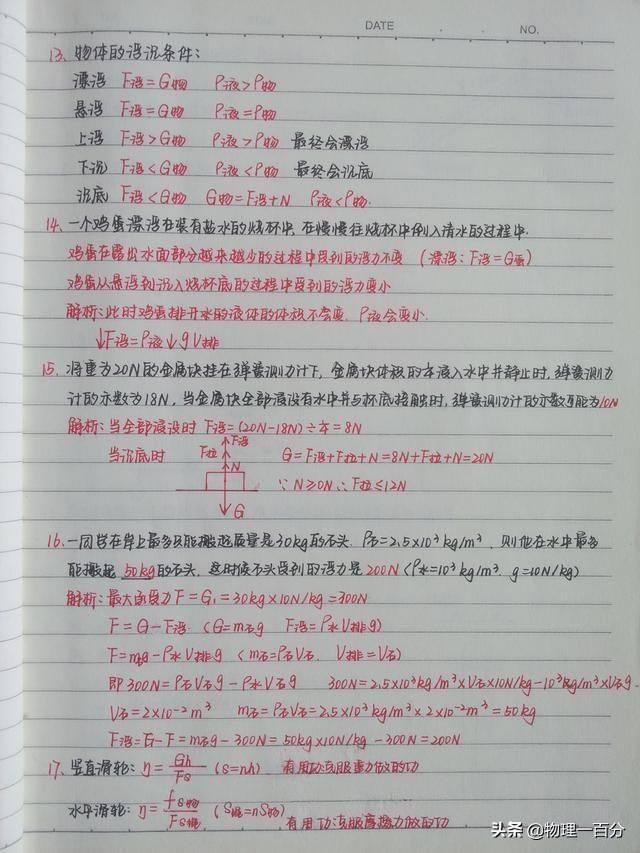 DATE NO.
13、物体的浮沉条件：
漂浮 F浮=G物 ρ液>ρ物
悬浮 F浮=G物 ρ液=ρ物
上浮 F浮>G物 ρ液>ρ物 最终会漂浮
下沉 F浮<G物 ρ液<ρ物 最终会沉底
沉底 F浮<G物 G物=F浮+N ρ液<ρ物
14、一个鸡蛋漂浮在装有盐水的烧杯中,在慢慢往烧杯中倒入清水的过程中.
鸡蛋在露出水面部分越来越少的过程中受到的浮力不变 (漂浮:F浮=G蛋)
鸡蛋从悬浮到沉入烧杯底的过程中受到的浮力变小
解析:此时鸡蛋排开水的液体的体积不会变.ρ液会变小.
↓F浮=ρ液↓gV排
15、将重为20N的金属块挂在弹簧测力计下,金属块体积的1/4浸入水中并静止时,弹簧测力
计的示数为18N,当金属块全部浸没有水中并与杯底接触时,弹簧测力计的示数可能为10N
解析:当全部浸没时 F浮=(20N-18N)÷1/4=8N
当沉底时 F拉 F浮 N G G=F浮+F拉+N=8N+F拉+N=20N
∵N≥0N ∴F拉≤12N
16、一同学在岸上最多只能搬起质量是30kg的石头.ρ石=2.5×10³kg/m³.则他在水中最多
能搬起 50kg的石头.这时候石头受到的浮力是200N(ρ水=10³kg/m³.g=10N/kg)
解析:最大承受力F=G₁=30kg×10N/kg=300N
F=G-F浮 (G=m石g F浮=ρ水V排g)
F=m石g-ρ水V排g (m石=ρ石V石. V排=V石)
即300N=ρ石V石g-ρ水V石g 300N=2.5×10³kg/m³×V石×10N/kg-10³kg/m³×V石g
V石=2×10⁻²m³ m石=ρ石V石=2.5×10³kg/m³×2×10⁻²m³=50kg
F浮=G-F=m石g-300N=50kg×10N/kg-300N=200N
17、竖直滑轮:η=Gh/Fs (s=nh) 有用功克服重力做的功
水平滑轮:η=fs物/Fs绳 (S绳=nS物) 有用功克服摩擦力做的功
头条@物理一百分